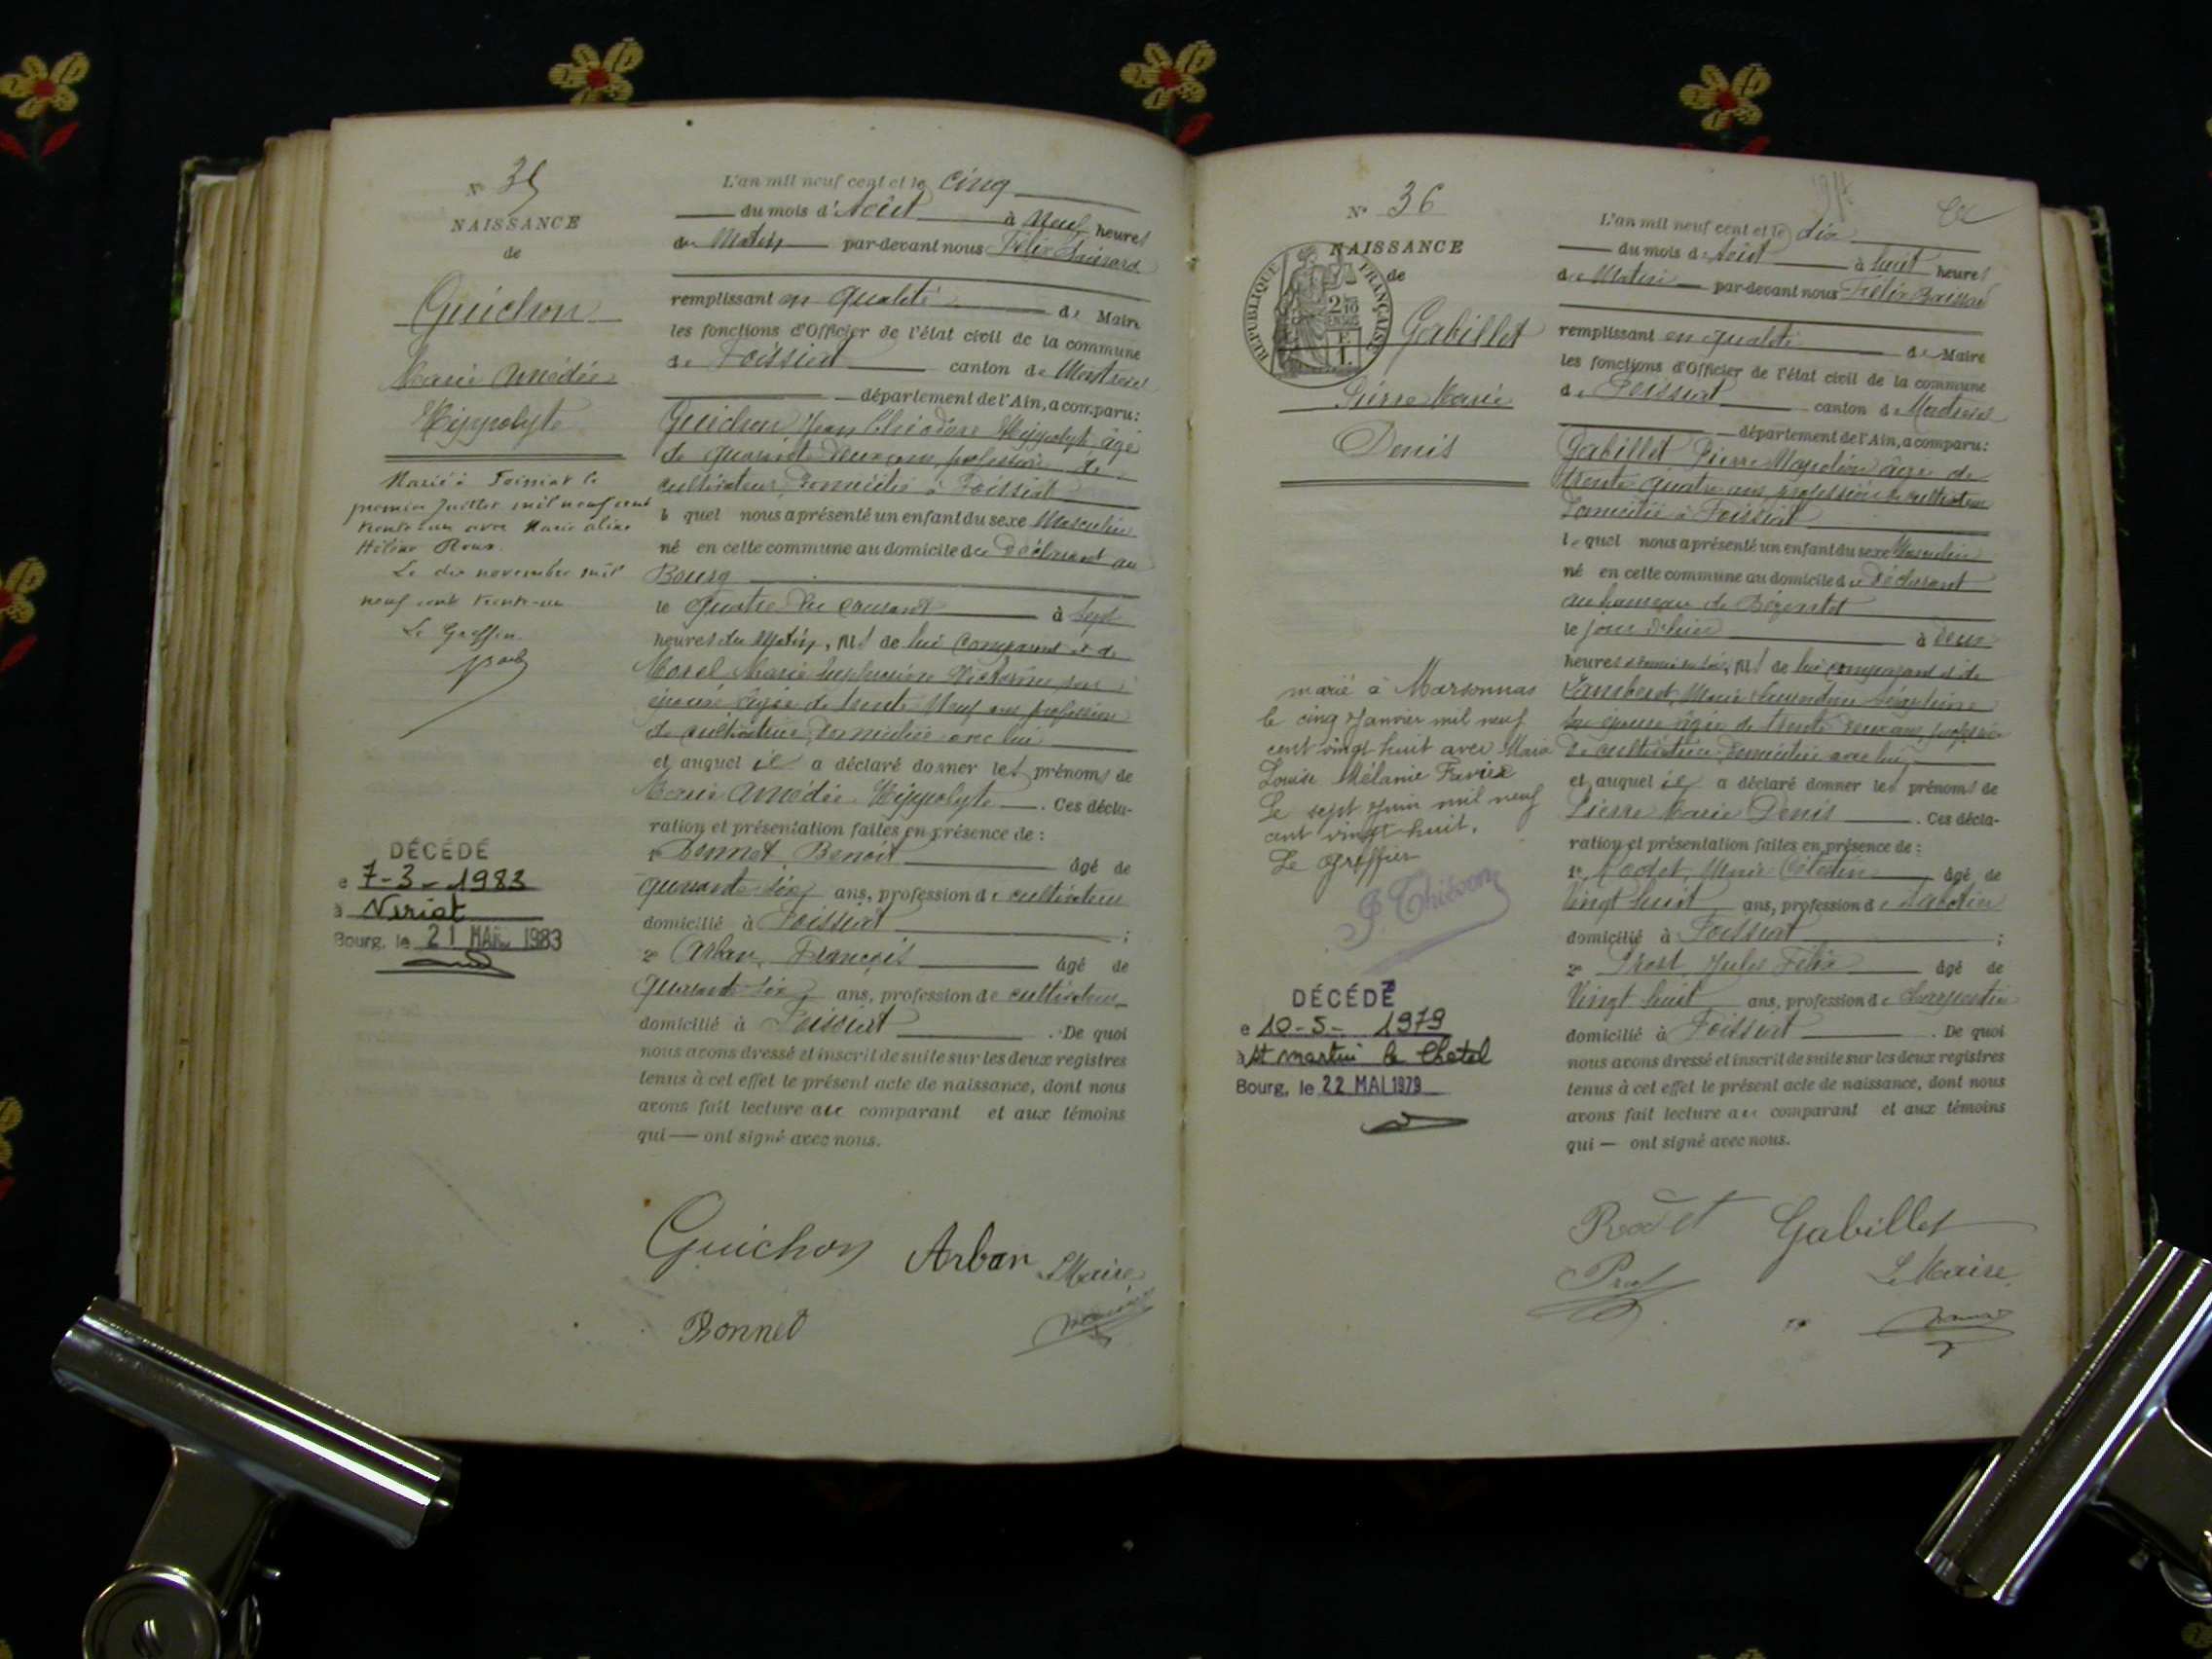 N° 35
NAISSANCE
de
Guichon
Marie Amédée
Hippolyte
Marié à Foissiat le
premier Juillet mil neuf cent
trente un avec Marie Aline
Hélène Roux.
Le dix novembre mil
neuf cent trente-un
Le Greffier
DÉCÉDÉ
e 7-3-1983
à Viriat
Bourg, le 21 MAR. 1983
L'an mil neuf cent et le cinq
du mois d'Août à Neuf heures
du Matin par-devant nous Félix
remplissant en qualité de Maire
les fonctions d'Officier de l'état civil de la commune
de Foissiat canton de Montrevel
département de l'Ain, a comparu:
Guichon Jean Théodore Hippolyte âgé
de quarante deux ans, profession de
cultivateur, domicilié à Foissiat
le quel nous a présenté un enfant du sexe Masculin
né en cette commune au domicile du déclarant au
Bourg
le quatre du courant à sept
heures du Matin, fils de lui comparant et de
Morel Marie Victorine son
épouse, âgée de trente Neuf ans profession
de cultivatrice, domiciliée avec lui
et auquel il a déclaré donner les prénoms de
Marie Amédée Hippolyte. Ces décla-
ration et présentation faites en présence de :
1° Bonnet, Benoit âgé de
quarante six ans, profession de cultivateur
domicilié à Foissiat ;
2° Arban, François âgé de
quarante six ans, profession de cultivateur
domicilié à Foissiat. De quoi
nous avons dressé et inscrit de suite sur les deux registres
tenus à cet effet le présent acte de naissance, dont nous
avons fait lecture au comparant et aux témoins
qui — ont signé avec nous.
Guichon Arban Le Maire
Bonnet
N° 36
NAISSANCE
de
RÉPUBLIQUE FRANÇAISE
Gabillet
Pierre Marie
Denis
marié à Marsonnas
le cinq Janvier mil neuf
cent vingt huit avec Marie
Louise Mélanie Favier
Le sept Juin mil neuf
cent vingt huit.
Le Greffier
DÉCÉDÉ
e 10-5-1979
à St martin le Chatel
Bourg, le 22 MAI 1979
L'an mil neuf cent et le dix
du mois d'Août à huit heures
du Matin par-devant nous Félix
remplissant en qualité de Maire
les fonctions d'Officier de l'état civil de la commune
de Foissiat canton de Montrevel
département de l'Ain, a comparu:
Gabillet Pierre Napoléon âgé de
trente quatre ans profession de cultivateur
domicilié à Foissiat
le quel nous a présenté un enfant du sexe Masculin
né en cette commune au domicile du déclarant
au hameau de
le jour d'hier à deux
heures du soir, fils de lui comparant et de
Marie
son épouse âgée de trente deux ans, profession
de cultivatrice, domiciliée avec lui
et auquel il a déclaré donner les prénoms de
Pierre Marie Denis. Ces décla-
ration et présentation faites en présence de :
1° Rodet, Marie Célestin âgé de
Vingt huit ans, profession de sabotier
domicilié à Foissiat ;
2° Prost, Jules Félix âgé de
Vingt huit ans, profession de charpentier
domicilié à Foissiat. De quoi
nous avons dressé et inscrit de suite sur les deux registres
tenus à cet effet le présent acte de naissance, dont nous
avons fait lecture au comparant et aux témoins
qui — ont signé avec nous.
Rodet Gabillet
Prost Le Maire